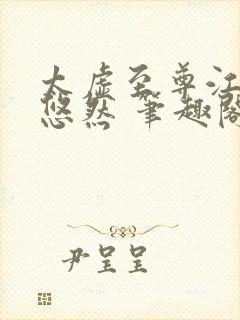 太虚至尊江
悠然 笔趣阁
尹呈呈